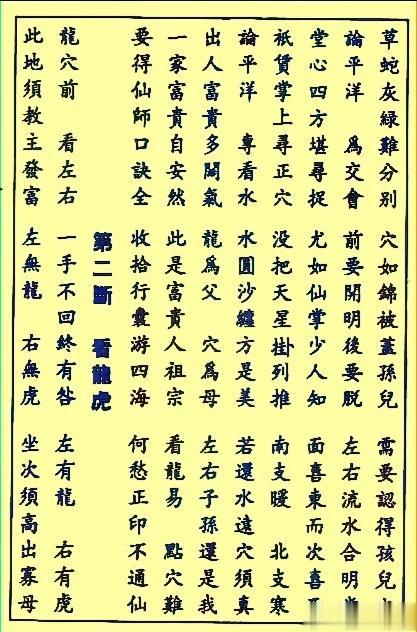 草蛇灰綠難分別 穴如錦被蓋孫兒 需要認得孩兒
論平洋 為交會 前要開明後要脫 左右流水合明
堂心四方堪尋捉 尤如仙掌少人知 面喜東而次喜
祇賃掌上尋正穴 沒把天星掛列推 南支暖 北支寒
論平洋 專看水 水圓沙纏方是美 若還水遠穴須真
出人富貴多闊氣 龍為父 穴為母 左右子孫還是我
一家富貴自安然 此是富貴人祖宗 看龍易 點穴難
要得仙師口訣全 收拾行囊游四海 何愁正印不通仙
第二斷 看龍虎
龍穴前 看左右 一手不回終有咎 左有龍 右有虎
此地須教主發富 左無龍 右無虎 坐次須高出寡母